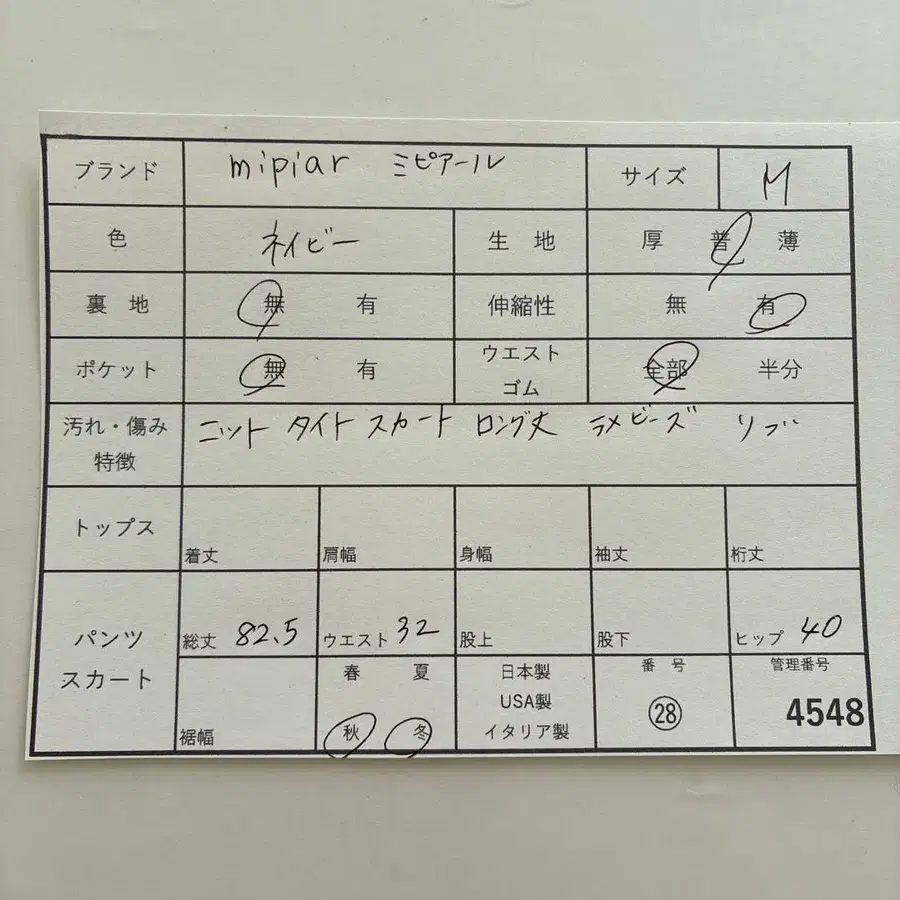 ブランド mipiar ミピアール サイズ M
色 ネイビー 生地 厚 普 薄
裏地 無 有 伸縮性 無 有
ポケット 無 有 ウエストゴム 全部 半分
汚れ・傷み特徴 ニット タイトスカート ロング丈 ラメビーズ リブ
トップス 着丈 肩幅 身幅 袖丈 裄丈
パンツスカート 総丈 82.5 ウエスト 32 股上 股下 ヒップ 40
裾幅 春 夏 秋 冬 日本製 USA製 イタリア製 番号 ㉘ 管理番号 4548